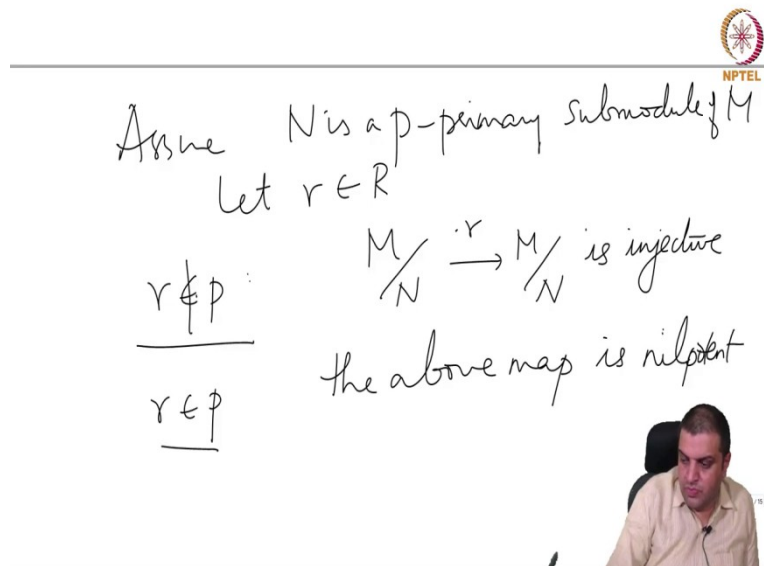 NPTEL
Assume N is a p-primary submodule of M
Let r ∈ R
r ∉ p : M/N —·r→ M/N is injective
r ∈ p the above map is nilpotent
/15